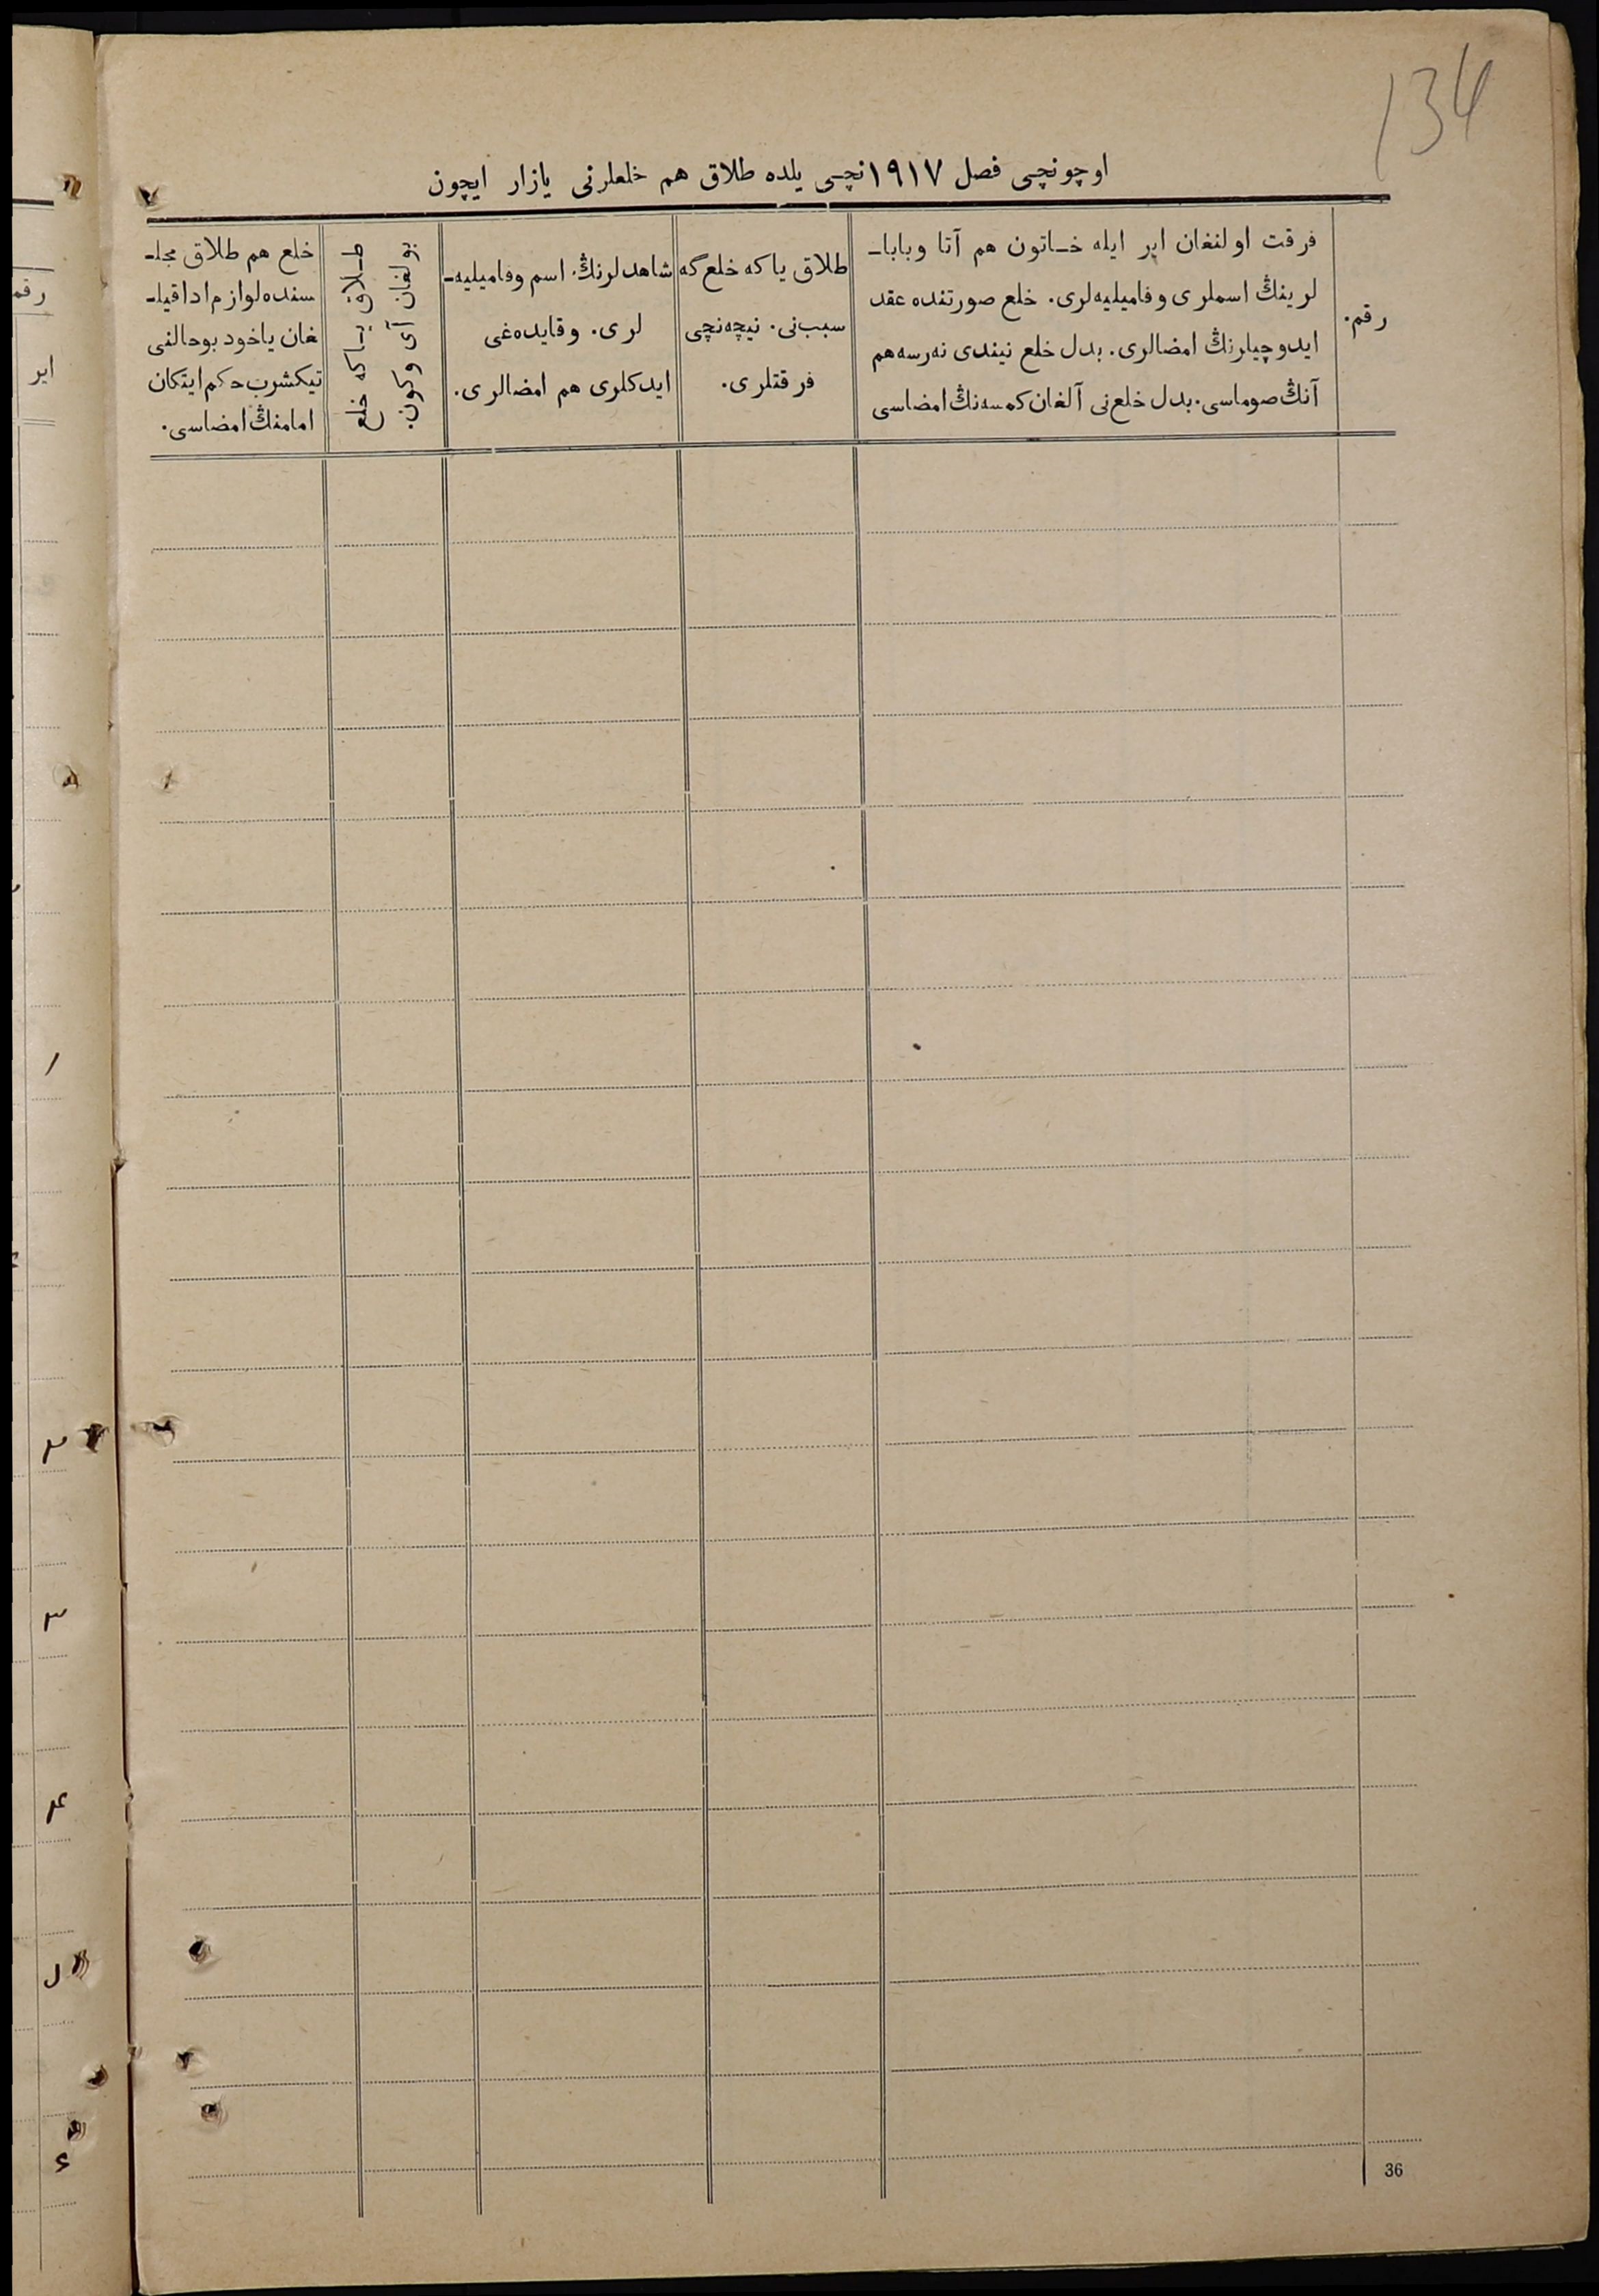 134
اوچونچی فصل ١٩١٧نچی یلده طلاق هم خلعلرنی یازار ایچون
رقم.
فرقت اولنغان ایر ایله خـاتون هم آتا وباباـ
لرینڭ اسملری وفامیلیه‌لری. خلع صورتنده عقد
ایدوچیلرنڭ امضالری. بدل خلع نیندی نه‌رسه‌هم
آنڭ صوماسی. بدل خلع‌نی آلغان کمسه‌نڭ امضاسی
طلاق یاکه خلع‌گه
سبب‌نی. نیچه‌نچی
فرقتلری.
شاهدلرنڭ اسم وفامیلیه‌ـ
لری. وقایده‌غی
ایدکلری هم امضالری.
طـلاق یـاکه خلع
بولغان آی وکون.
خلع هم طلاق مجلـ
سنده‌لوازم اداقیلـ
غان یاخود بوحالنی
تیکشرب حکم ایتکان
امامنڭ امضاسی.
36
رقم
ایر
١
٢
٣
۴